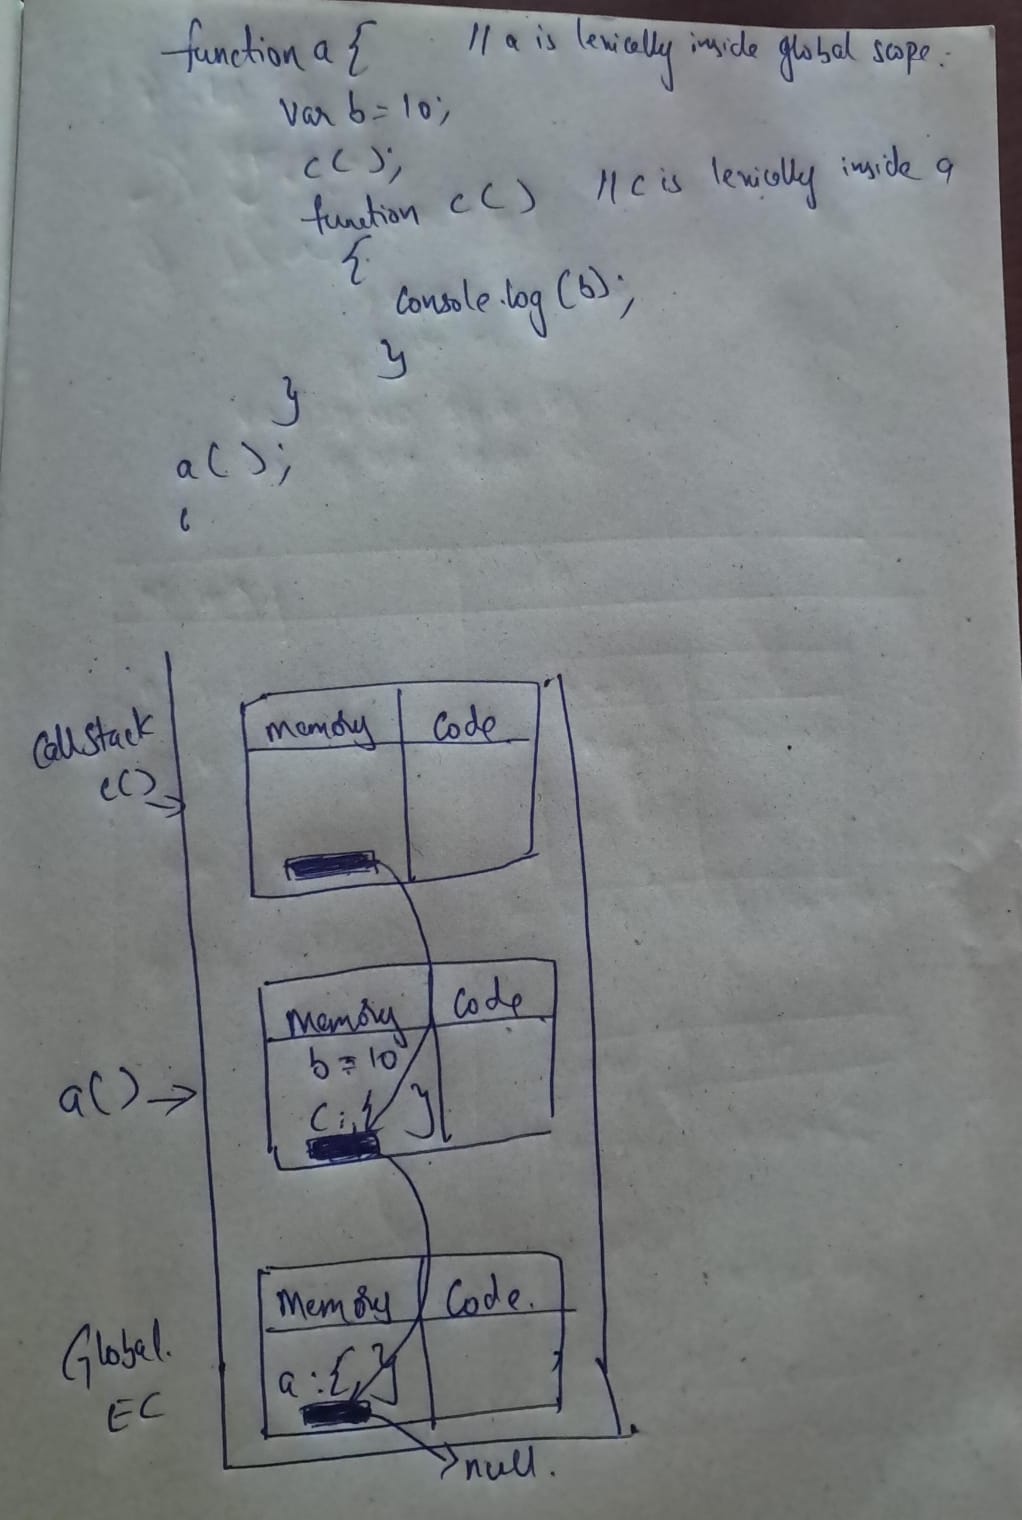 function a {     // a is lexically inside global scope.
var b = 10;
c();
function c()   // c is lexically inside a
{
console.log(b);
}
}
a();
c
Call Stack
c()
Memory Code
a()
Memory Code
b = 10
C : { }
Global.
EC
Memory Code.
a : { }
null.